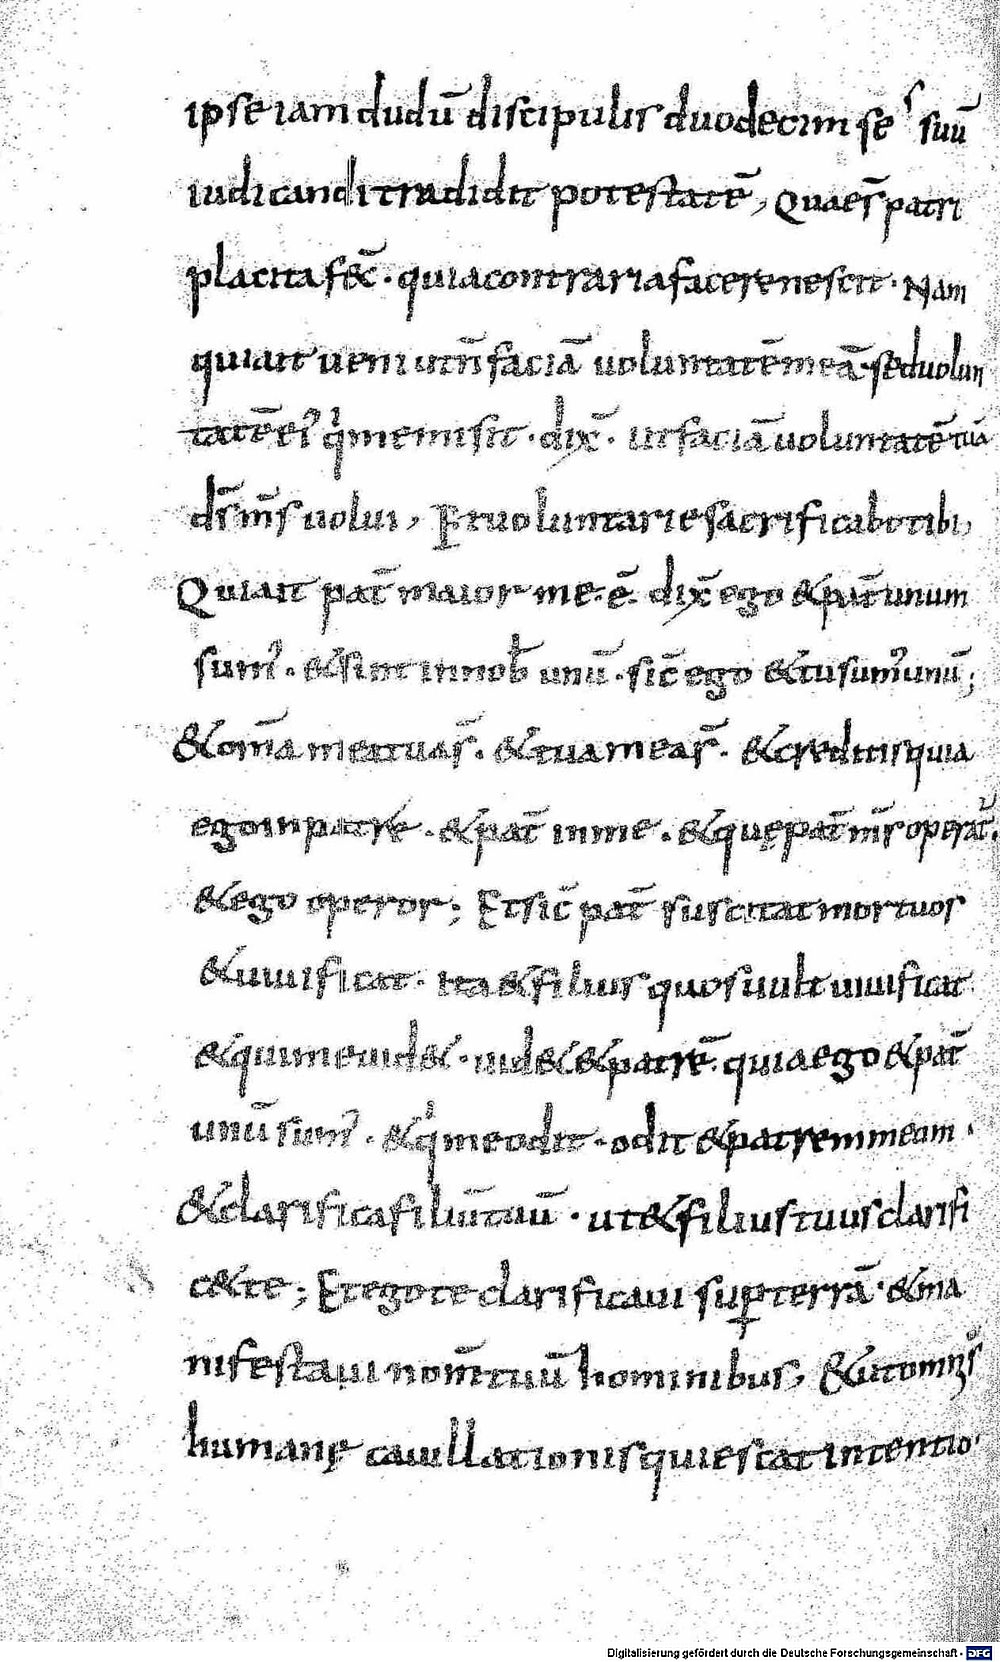 ipse iam dudū discipulis duodecim se s suū
iudicandi tradidit potestatē, Quae s̄ patri
placita fec̄ · quia contraria facere nescit · Nam
qui ait ueni ut n̄ faciā uoluntatē meā · sed uolun
tatē ei᾿ qͥ me misit · dix̄ · ut faciā uoluntatē tuā
ds̄ ms̄ uolui, Et uoluntarie sacrificabo tibi,
Qui ait pat̄ maior me · ē · dix̄ ego & pat̄ unum
sum᾿ · & sint in nob̄ unū · sic̄ ego & tu sum᾿ unū ;
& om̄a mea tua s̄ · & tua mea s̄ · & creditis quia
ego in patre · & pat̄ in me · & quę pat̄ ms̄ operat᾿ ·
& ego operor ; Et sic̄ pat̄ suscitat mortuos
& uiuificat · ita & filius quos uult uiuificat
& qui me uid& · uid& & patrē · quia ego & pat̄
unū sum᾿ · & qͥ me odit · odit & patrem meam ·
& clarifica filiū tuū · ut & filius tuus clarifi
c& te ; Et ego te clarificaui suꝑ terrā · & ma
nifestaui nom̄ tuū hominibus, & ut omnꝫ s
humanę cauillationis quiescat intentio ·
Digitalisierung gefördert durch die Deutsche Forschungsgemeinschaft - DFG